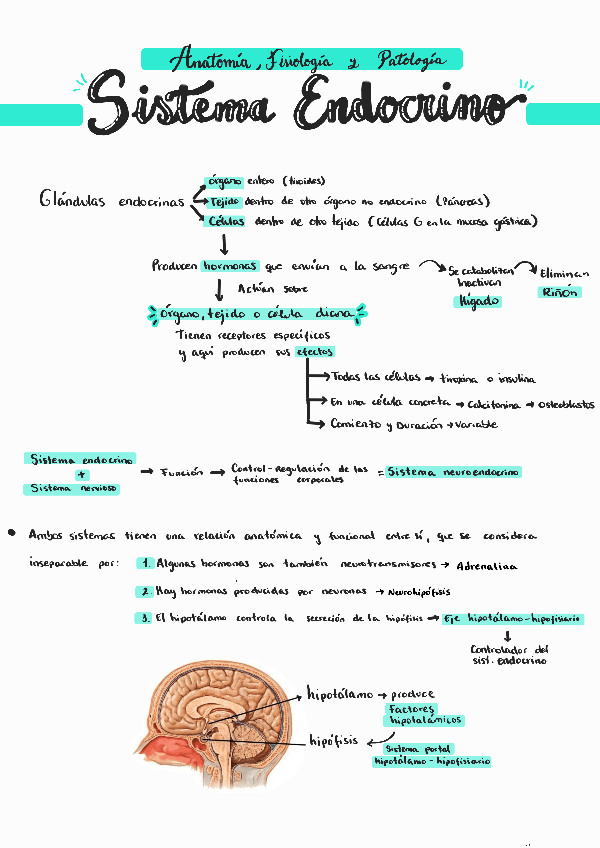 Anatomía, Fisiología y Patología
Sistema Endocrino
Glándulas endocrinas
órgano entero (tiroides)
Tejido dentro de otro órgano no endocrino (Páncreas)
Células dentro de otro tejido (Células G en la mucosa gástrica)
Producen hormonas que envían a la sangre
Se catabolizan
Inactivan
Hígado
Eliminan
Riñón
Actúan sobre
órgano, tejido o célula diana
Tienen receptores específicos
y aquí producen sus efectos
Todas las células → tiroxina o insulina
En una célula concreta → Calcitonina → Osteoblastos
Comienzo y Duración → Variable
Sistema endocrino
+
Sistema nervioso
→ Función → Control-Regulación de las
funciones corporales
= Sistema neuroendocrino
• Ambos sistemas tienen una relación anatómica y funcional entre sí, que se considera
inseparable por: 1. Algunas hormonas son también neurotransmisores → Adrenalina
2. Hay hormonas producidas por neuronas → Neurohipófisis
3. El hipotálamo controla la secreción de la hipófisis → Eje hipotálamo-hipofisiario
Controlador del
sist. endocrino
hipotálamo → produce
Factores
hipotalámicos
hipófisis
Sistema portal
hipotálamo-hipofisiario